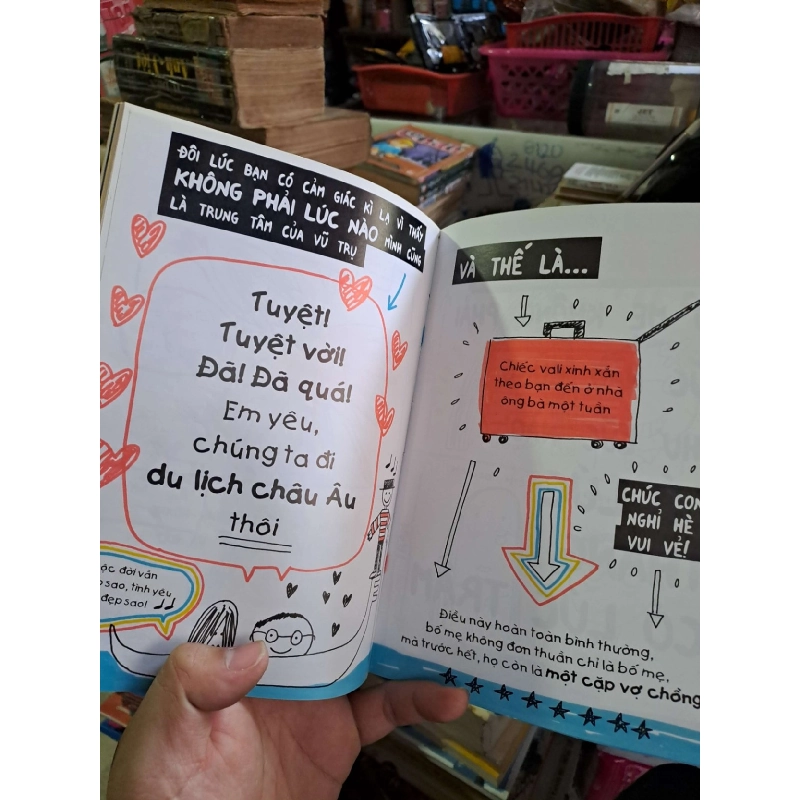 ĐÔI LÚC BẠN CÓ CẢM GIÁC KÌ LẠ VÌ THẤY
KHÔNG PHẢI LÚC NÀO MÌNH CŨNG
LÀ TRUNG TÂM CỦA VŨ TRỤ
Tuyệt!
Tuyệt vời!
Đã! Đã quá!
Em yêu,
chúng ta đi
du lịch châu Âu
thôi
đời vẫn
sao, tình yêu
đẹp sao!
VÀ THẾ LÀ...
Chiếc vali xinh xắn
theo bạn đến ở nhà
ông bà một tuần
CHÚC CON
NGHỈ HÈ
VUI VẺ!
Điều này hoàn toàn bình thường,
bố mẹ không đơn thuần chỉ là bố mẹ,
mà trước hết, họ còn là một cặp vợ chồng